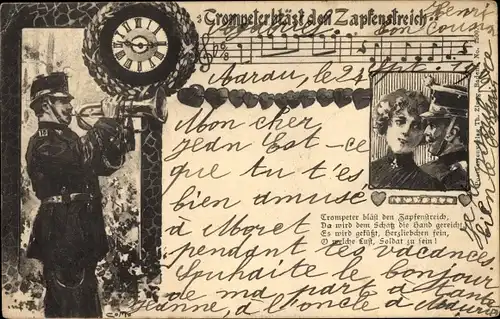 Trompeter bläst den Zapfenstreich.
Henri
ton cousin
Aarau, le 24
Mon cher
Jean Est-ce
que tu t'es
bien amusé
à Moret
pendant tes vacances
Souhaite le bonjour
de ma part à tante
Jeanne, à l'oncle à
Trompeter bläst den Zapfenstreich,
Da wird dem Schatz die Hand gereicht,
Es wird geküßt, Herzliebchen fein,
O welche Lust, Soldat zu sein!